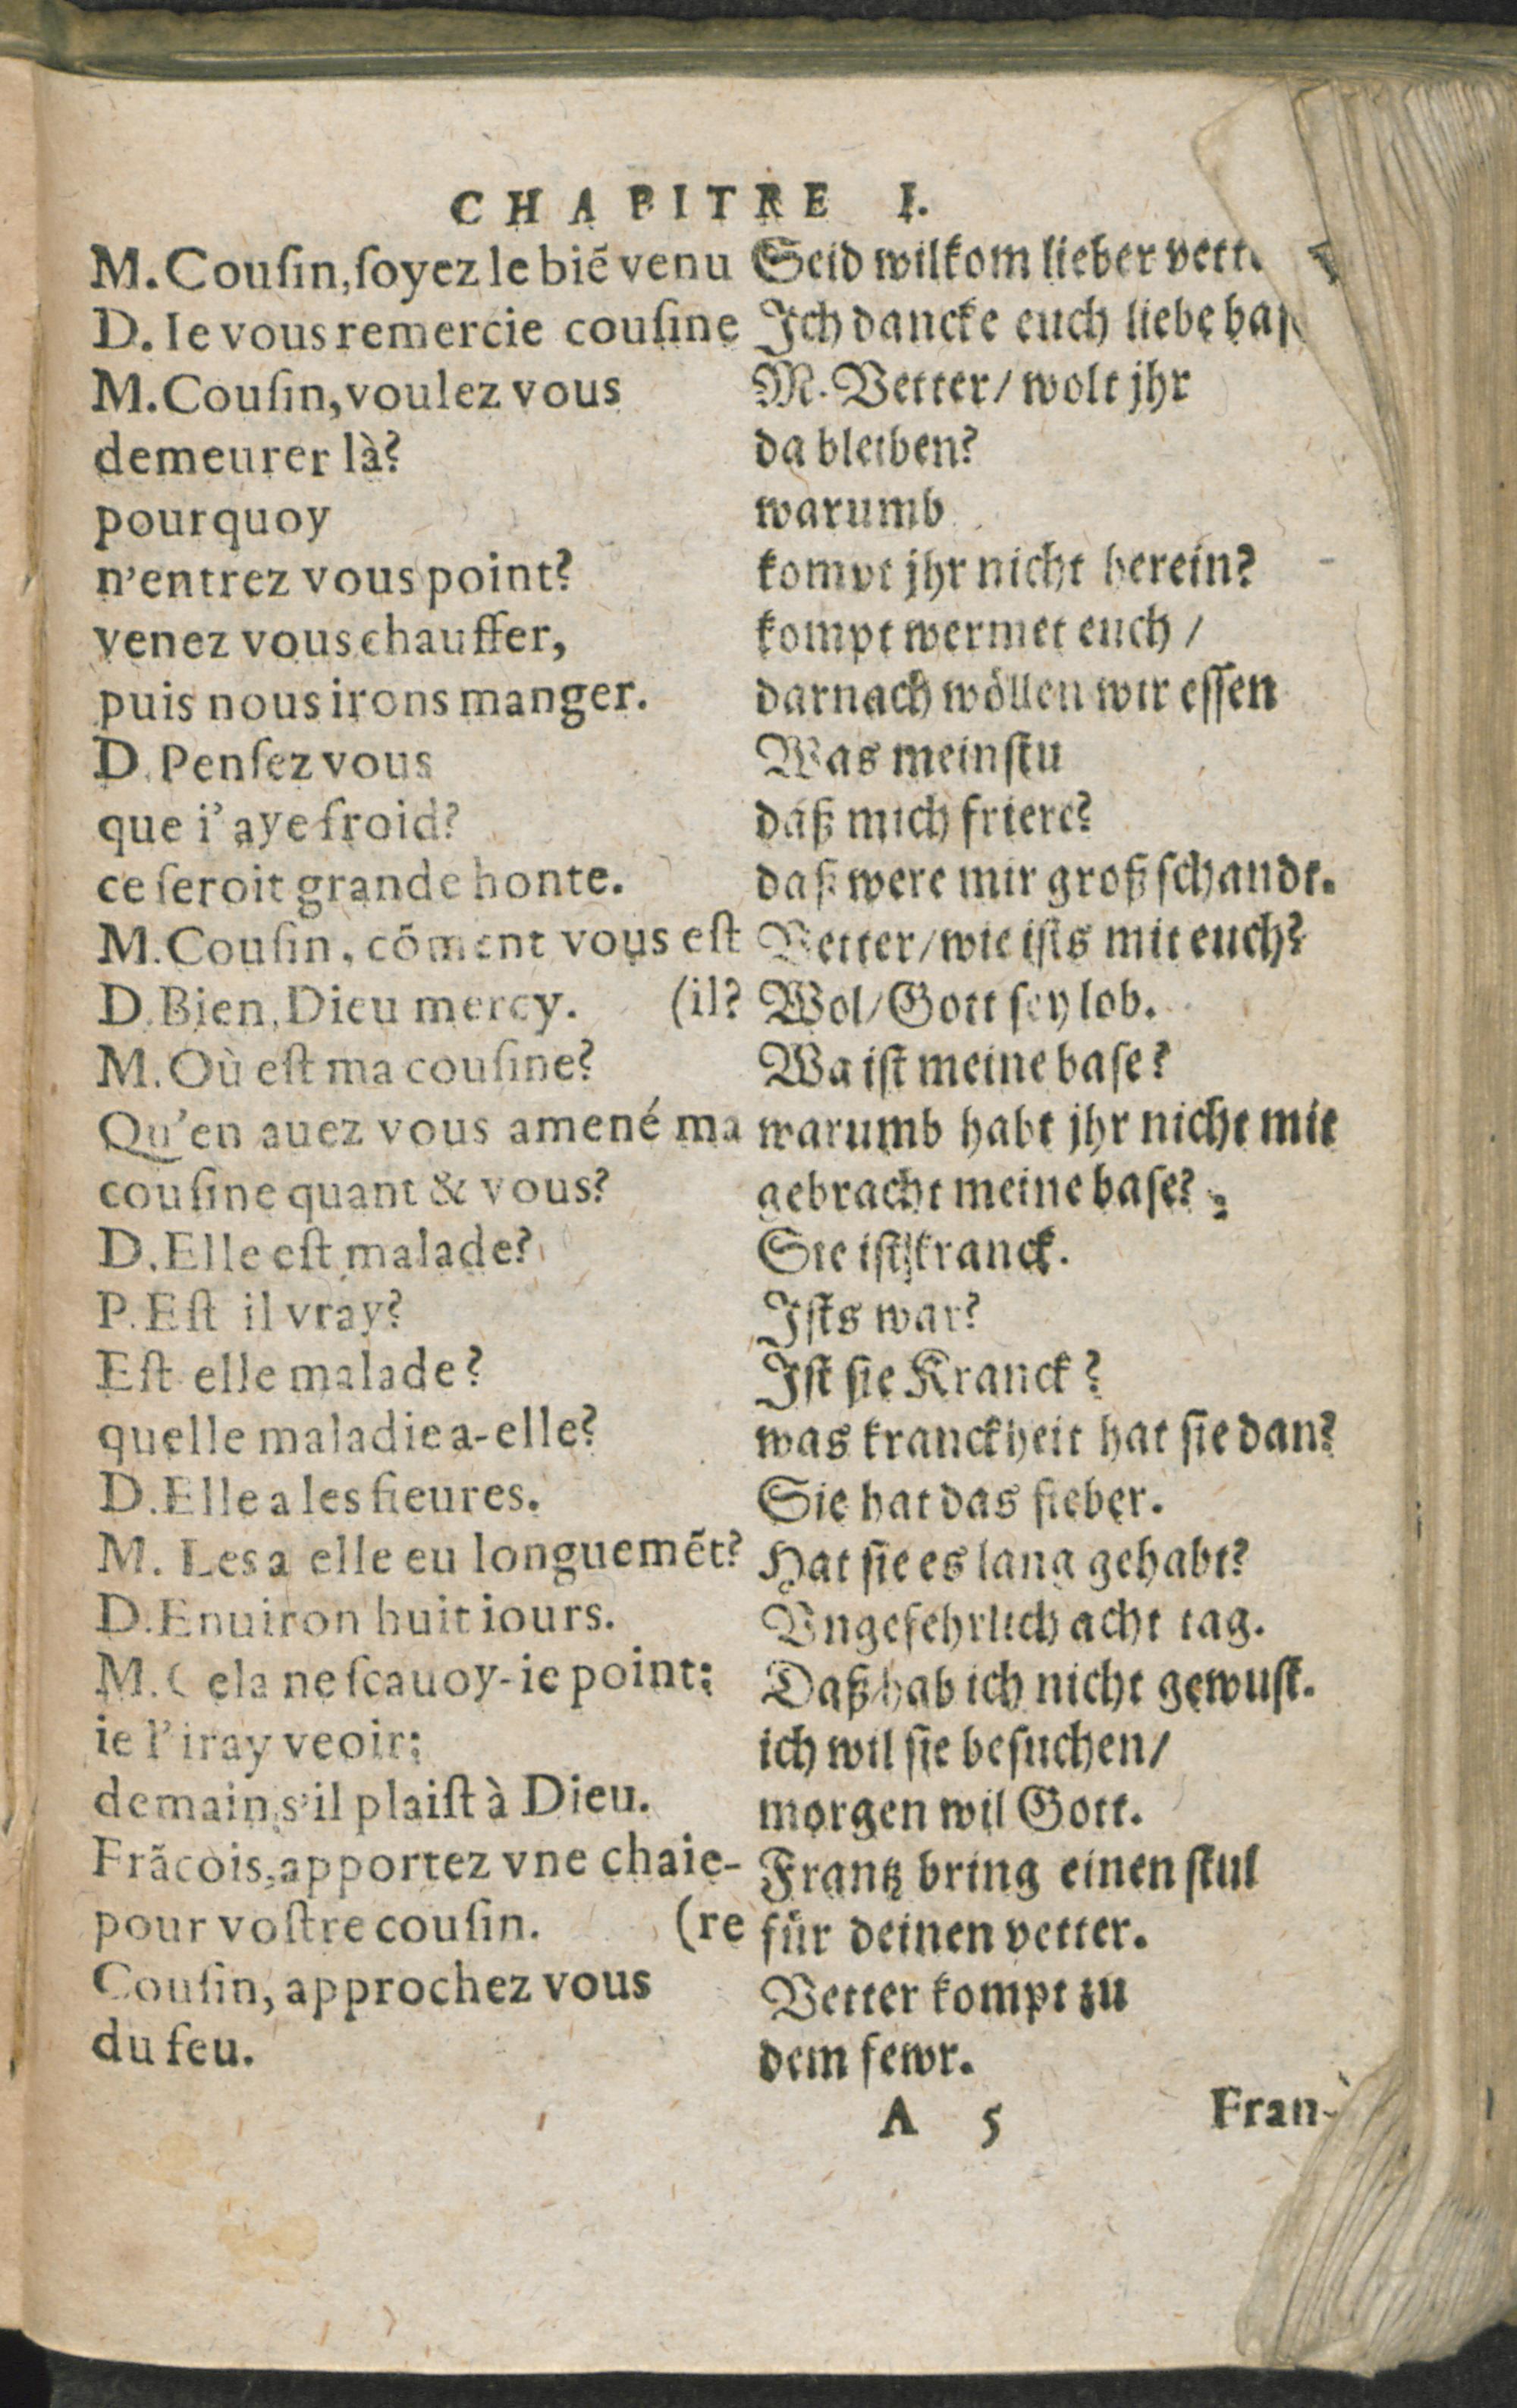 CHAPITRE I.
M. Couſin, ſoyez le biẽ venu
D. Ie vous remercie couſine
M. Couſin, voulez vous
demeurer là?
pourquoy
n'entrez vous point?
venez vous chauffer,
puis nous irons manger.
D. Penſez vous
que i'aye froid?
ce ſeroit grande honte.
M. Couſin, cõment vous eſt
D. Bien, Dieu mercy. (il?
M. Où eſt ma couſine?
Qu'en auez vous amené ma
couſine quant & vous?
D. Elle eſt malade?
P. Eſt il vray?
Eſt elle malade?
quelle maladie a-elle?
D. Elle a les fieures.
M. Les a elle eu longuemẽt?
D. Enuiron huit iours.
M. Cela ne ſcauoy-ie point:
ie l'iray veoir:
demain, s'il plaiſt à Dieu.
Frãcois, apportez vne chaie-
pour voſtre couſin. (re
Couſin, approchez vous
du feu.
Seid wilkom lieber
Ich dancke euch liebe
M. Vetter/ wolt jhr
da bleiben?
warumb
kompt jhr nicht herein?
kompt wermet euch /
darnach wöllen wir eſſen
Was meinſtu
daß mich friere?
daß were mir groß ſchandt.
Vetter/ wie iſts mit euch?
Wol/ Gott ſey lob.
Wa iſt meine baſe?
warumb habt jhr nicht mit
gebracht meine baſe?
Sie iſt kranck.
Iſts war?
Iſt ſie Kranck?
was kranckheit hat ſie dan?
Sie hat das fieber.
Hat ſie es lang gehabt?
Vngefehrlich acht tag.
Daß hab ich nicht gewuſt.
ich wil ſie beſuchen/
morgen wil Gott.
Frantz bring einen ſtul
für deinen vetter.
Vetter kompt zu
dem fewr.
A 5
Fran-